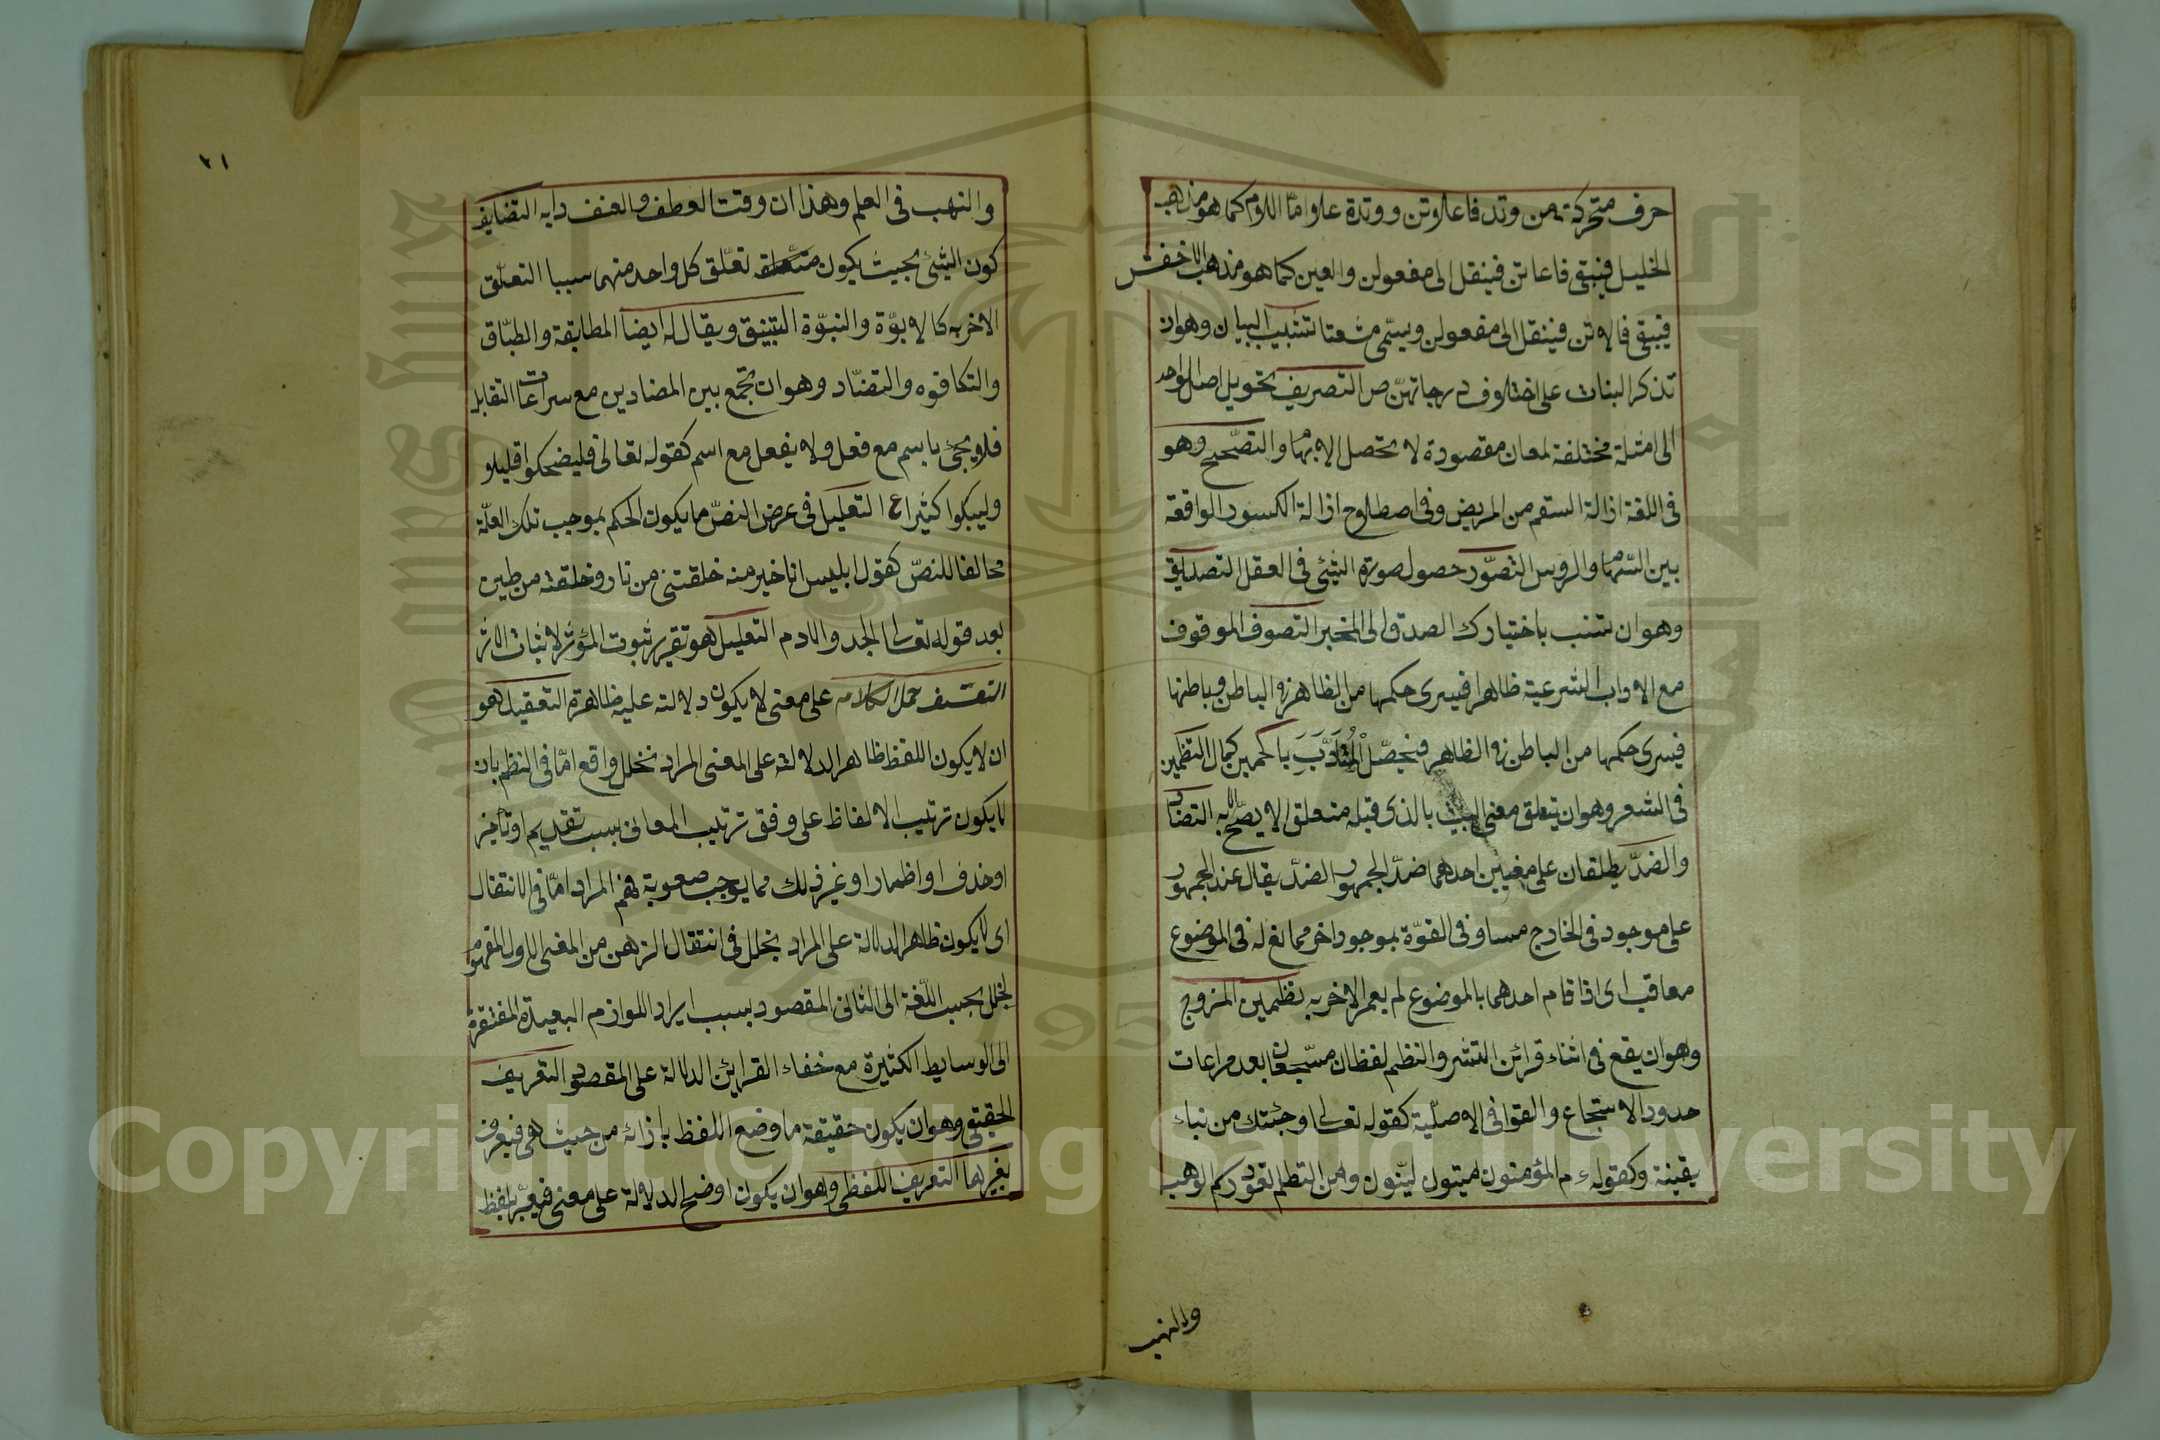 حرف متحركة من وتد فاعلاتن ووتدة علا واما اللام كما هو مذهب
الخليل فيبقى فاعاتن فينقل الى مفعولن والعين كما هو مذهب الاخفش
فيبقى فالاتن فينقل الى مفعولن ويسمى مشعثا تشبيب البيان وهو ان
تذكر البنات على اختلاف درجاتهن ص التصريف تحويل اصل الواحد
الى امثلة مختلفة لمعان مقصودة لا تحصل الا بها والتصحيح وهو
فى اللغة ازالة السقم من المريض وفى اصطلاح ازالة الكسور الواقعة
بين السهام والروس التصور حصول صورة الشئ فى العقل التصديق
وهو ان تنسب باختيارك الصدق الى المخبر التصوف الموقوف
مع الاداب الشرعية ظاهرا فيسرى حكمها من الظاهر فى الباطن وباطنها
فيسرى حكمها من الباطن فى الظاهر فيحصل للمتأدب بالحكمين كمال التظمين
فى الشعر وهو ان يتعلق معنى البيت بالذى قبله متعلق الا يصح الا به التضاد
والضد يطلقان على معنيين احدهما ضد الجمهور الضد يقال عند الجمهور
على موجود فى الخارج مساو فى القوة بموجود اخر ممانع له فى الموضوع
معاقب اى اذا قام احدهما بالموضوع لم يعم الاخر به تظمين المزوج
وهو ان يقع فى اثناء قرائن النثر والنظم لفظان مسجعان بعد مراعات
حدود الاستجاع والقوافى الاصلية كقوله تعالى وجئتك من نباء
يقينة وكقوله ءم المؤمنون هيتون ليتون ومن النظم تعود كم الوهب
والنهب
٢١
والنهب فى العلم وهذا ان وقت العطف والعنف دايه التضايف
كون الشئ بحيث يكون متعلق تعلق كل واحد منهما سببا التعلق
الاخر به كالابوة والنبوة التبنيق ويقال له ايضا المطابقة والطباق
والتكافوه والتضاد وهو ان تجمع بين المضادين مع مراعات التقابل
فلا يجئ باسم مع فعل ولا بفعل مع اسم كقوله تعالى فليضحكوا قليلا
وليبكوا كثيرا ع التعليل فى عرض النص ما يكون الحكم بموجب تلك العلة
مخالفا للنص كقول ابليس انا خير منه خلقتنى من نار وخلقته من طين
بعد قوله تعالى اسجدوا لادم التعليل هو تقرير ثبوت المؤثر لاثبات الاثر
التعسف حمل الكلام على معنى لا يكون دلالته عليه ظاهرة التعقيد هو
ان لا يكون اللفظ ظاهر الدلالة على المعنى المراد نخلل واقع اما فى النظم بان
لا يكون ترتيب الالفاظ على وفق ترتيب المعانى بسبب تقديم او تأخير
او خذف او اظمار او غير ذلك مما يوجب صعوبة فهم المراد اما فى الانتقال
اى لا يكون ظاهر الدلالة على المراد بخلل فى انتقال الزهن من المعنى الاول المفهوم
لخلل بحسب اللغة الى الثانى المقصود بسبب ايراد اللوازم البعيدة المفتقرة
الى الوسايط الكثيرة مع خفاء القراين الدالة على المقصود التعريف
الحقيقى وهو ان يكون حقيقة ما وضع اللفظ بازائه من حيث هى فيعرف
بغيرها التعريف اللفظى وهو ان يكون اوضح الدلالة على معنى فيعبر بلفظ
Copyright © King Saud University
King Saud University
1957